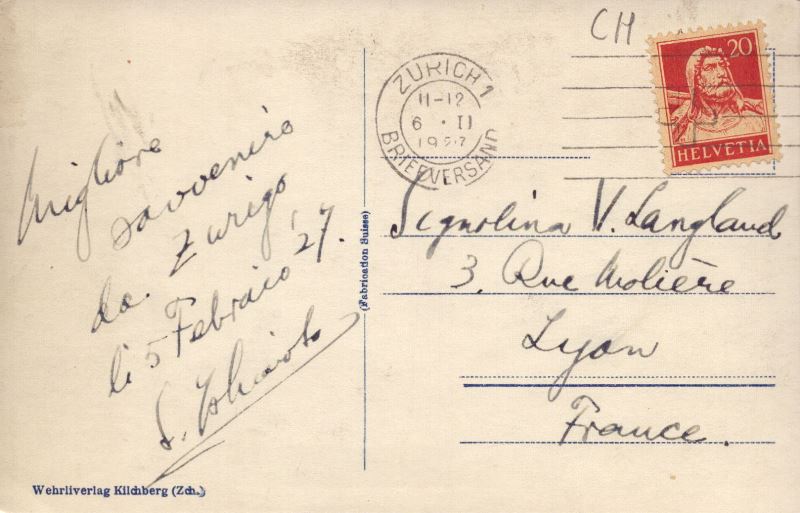 Migliore
souvenire
da Zurigo
li 5 Febraio '27.
CH
20
HELVETIA
ZÜRICH 1
11-12
6 · II
BRIEFVERSAND
Signolina V. Langland
3. Rue Molière
Lyon
France.
(Fabrication Suisse)
Wehrliverlag Kilchberg (Zch.)